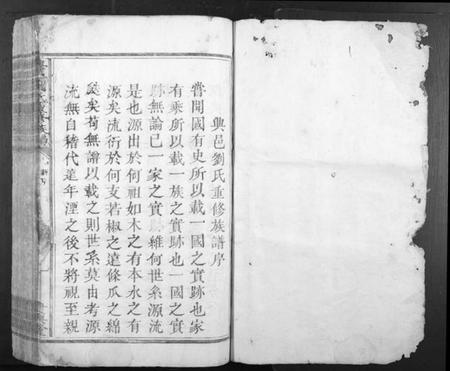 興邑劉氏重修族譜序
嘗聞國有史所以載一國之實跡也家
有乘所以載一族之實跡也一國之實
跡無論已一家之實 維何世系源流
是也源出於何祖如木之有本水之有
源矣流衍於何支若椒之遠條瓜之綿
矣苟無譜以載之則世系莫由考源
流無自稽代遠年湮之後不將視至親